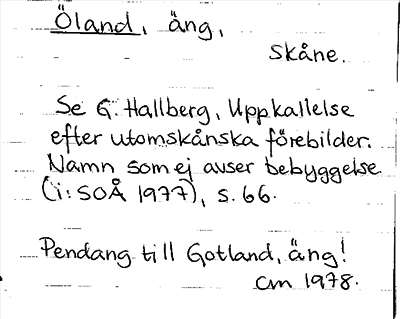 Öland, äng,
Skåne.
Se G. Hallberg, Uppkallelse
efter utomskånska förebilder.
Namn som ej avser bebyggelse
(i: SOÅ 1977), s. 66.
Pendang till Gotland, äng!
CM 1978.